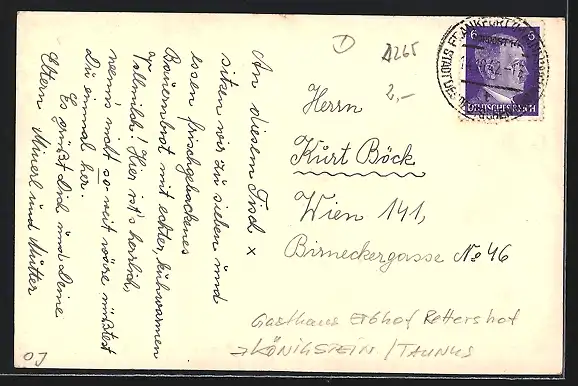 An diesem Tisch x
sitzen wir zu sieben und
essen frischgebackenes
Bauernbrot mit echter, kuhwarmen
Vollmilch! Hier ist's herrlich,
wenn's nicht so weit wäre müßtest
Du einmal her.
Es grüßt Dich und Deine
Eltern Minerl und Mutter
D
A265
2,-
6
DEUTSCHES REICH
Herrn
Kurt Böck
Wien 141,
Birneckergasse No 46
Gasthaus Erbhof Rettershof
KÖNIGSTEIN / TAUNUS
OJ